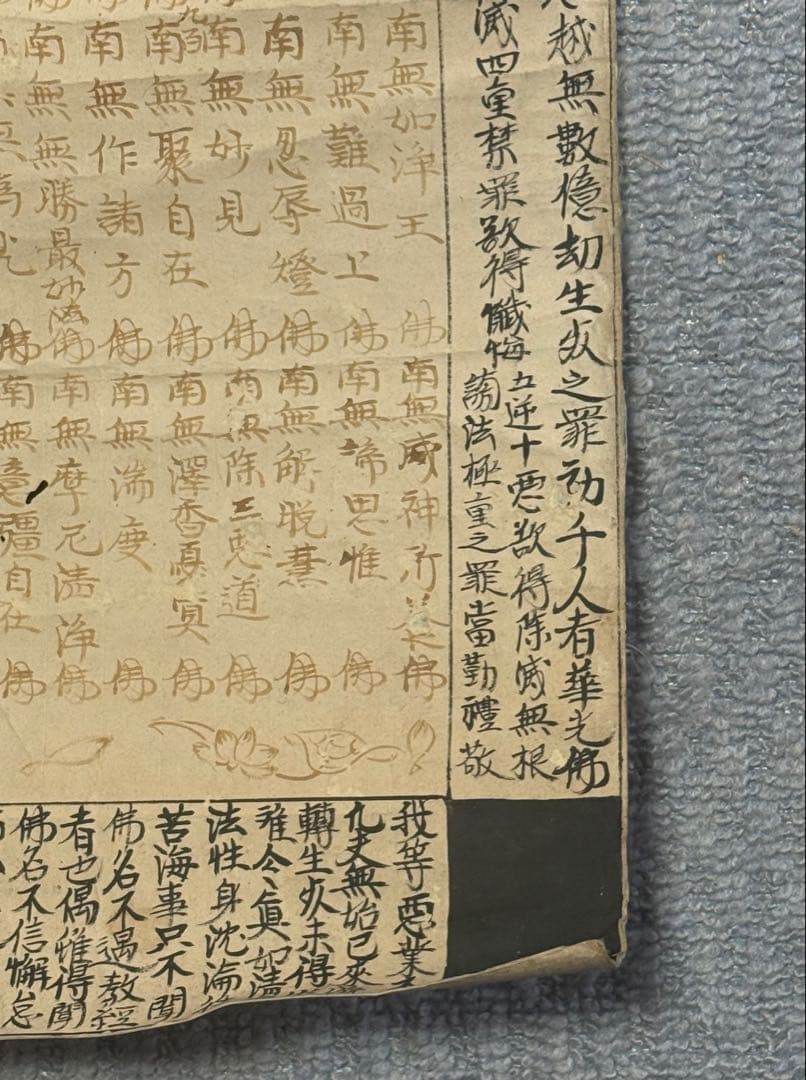 越無數億劫生死之罪初千人者華光佛
滅四重禁罪欲得懺悔五逆十惡欲得除滅無根
謗法極重之罪當勤禮敬
南無如淨王佛南無威神所養佛
南無難過上佛南無諦思惟佛
南無忍辱燈佛南無解脫慧佛
南無妙見佛南無除三惡道佛
南無聚自在佛南無澤香
佛
南無作諸方佛南無湍度佛
南無無勝最妙佛南無摩尼清淨佛
佛南無意彊自在佛
我等惡業
九夫無始已來
轉生死未得
雖今真如清
法性身沈淪
苦海事只不聞
佛名不遇教經
者也偶雖得聞
佛名不信懈怠